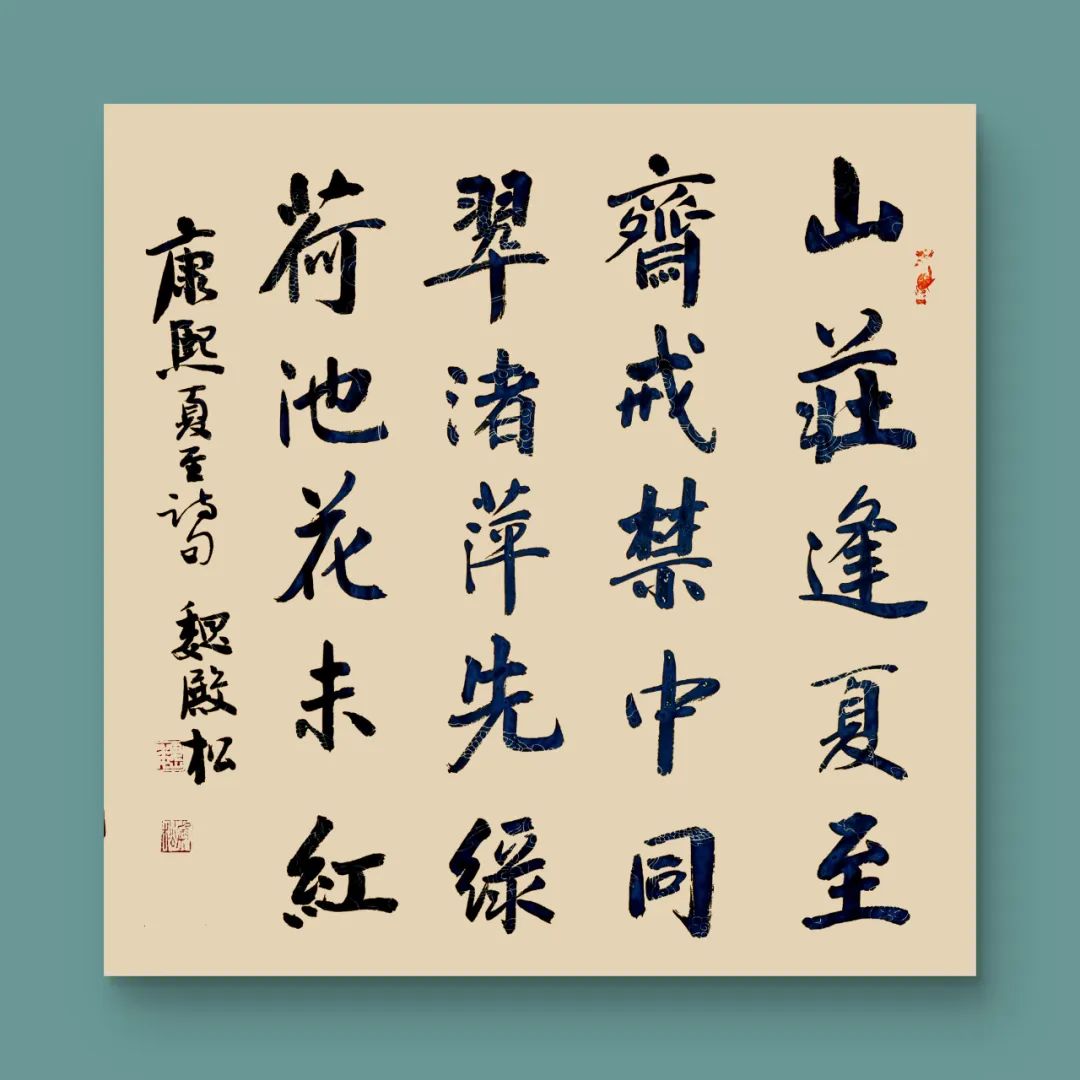 山莊逢夏至
齋戒禁中同
翠渚萍先綠
荷池花未紅
康熙夏至詩句 魏殿松